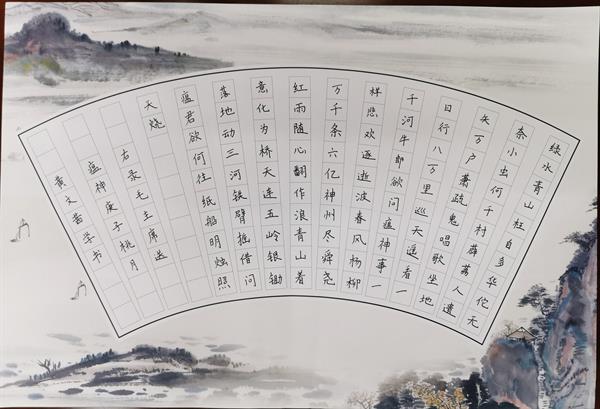 绿水青山枉自多华佗无
奈小虫何千村薜荔人遗
矢万户萧疏鬼唱歌坐地
日行八万里巡天遥看一
千河牛郎欲问瘟神事一
样悲欢逐逝波春风杨柳
万千条六亿神州尽舜尧
红雨随心翻作浪青山着
意化为桥天连五岭银锄
落地动三河铁臂摇借问
瘟君欲何往纸船明烛照
天烧
右录毛主席送
瘟神庚子桃月
黄文学书